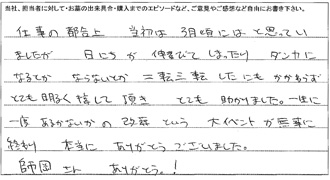 当社、担当者に対して・お墓の出来具合・購入までのエピソードなど、ご意見やご感想など自由にお書き下さい。
仕事の都合上 当初は3月頃にはと思ってい
ましたが 日にちが伸びてしまったり ダンカに
なるとか ならないとか 二転三転したにもかかわらず
とても明るく接して頂き とても助かりました。一生に
一度あるかないかの改葬という 大イベントが無事に
終わり 本当に ありがとうございました。
師岡さん ありがとう。!